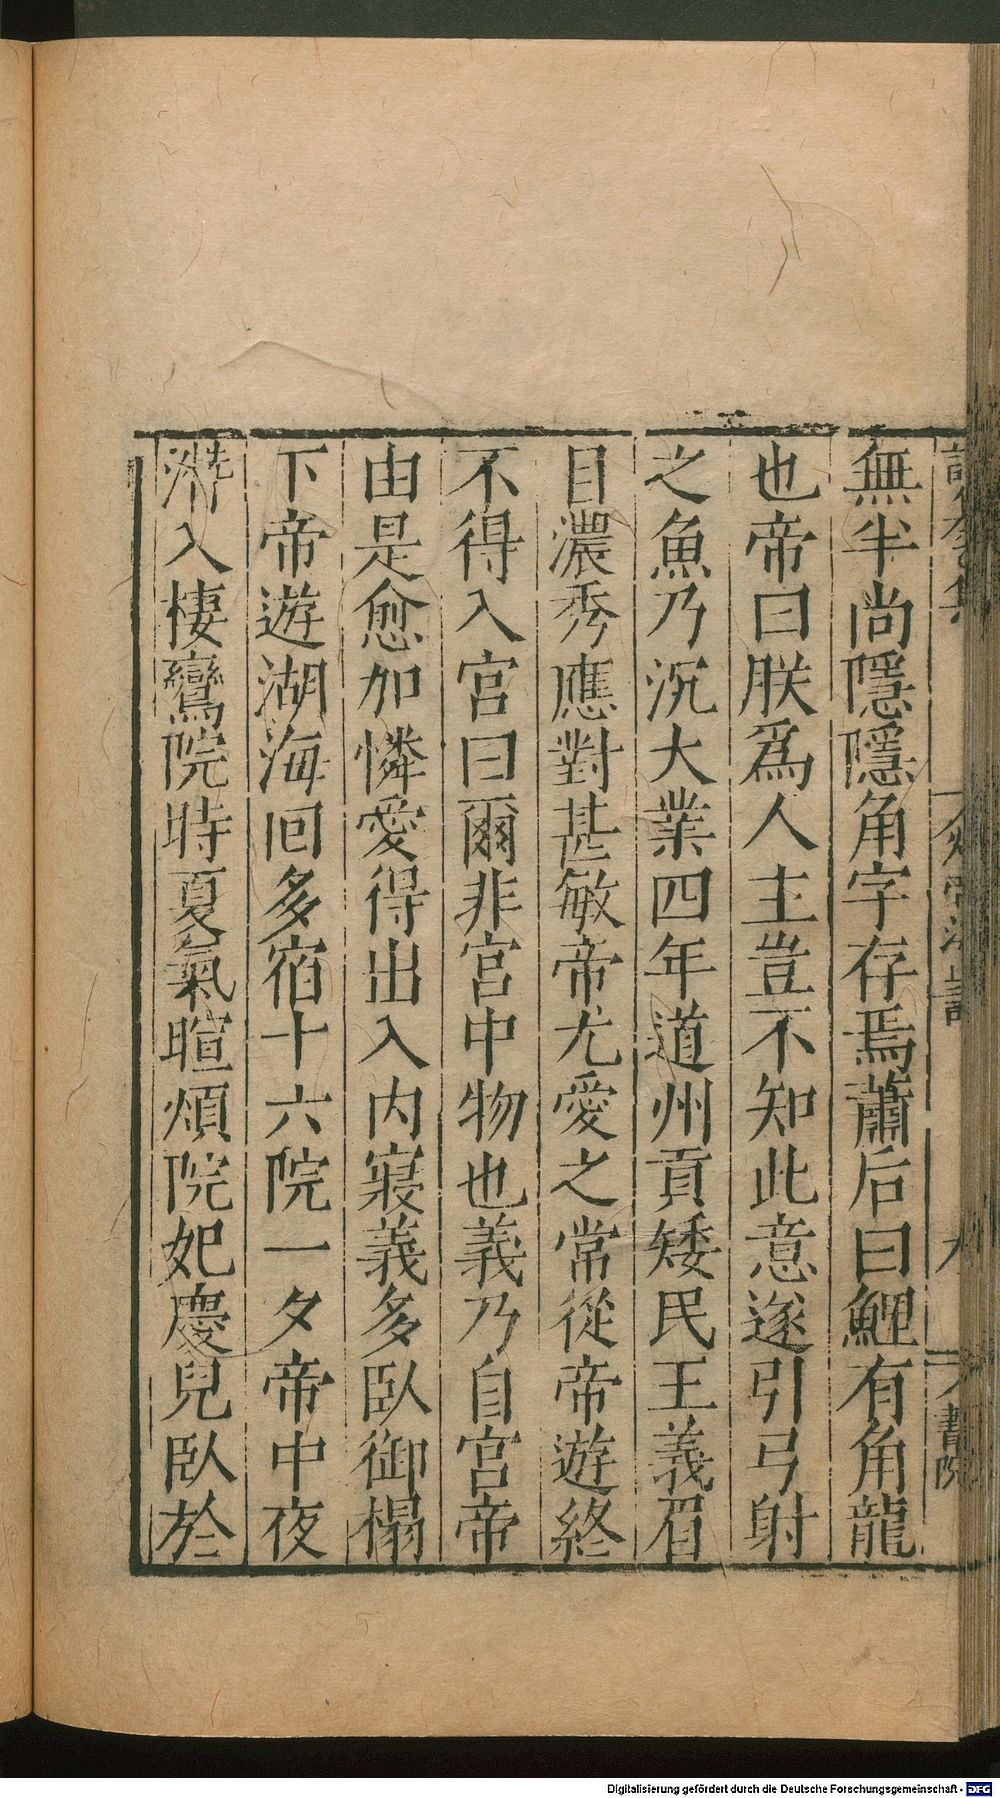 無半尚隱隱角字存焉蕭后曰鯉有角龍
也帝曰朕爲人主豈不知此意遂引弓射
之魚乃沉大業四年道州貢矮民王義眉
目濃秀應對甚敏帝尤愛之常從帝遊終
不得入宮曰爾非宮中物也義乃自宮帝
由是愈加憐愛得出入内寢義多臥御榻
下帝遊湖海回多宿十六院一夕帝中夜
潛入棲鸞院時夏氣暄煩院妃慶兒臥於
書院
Digitalisierung gefördert durch die Deutsche Forschungsgemeinschaft - DFG